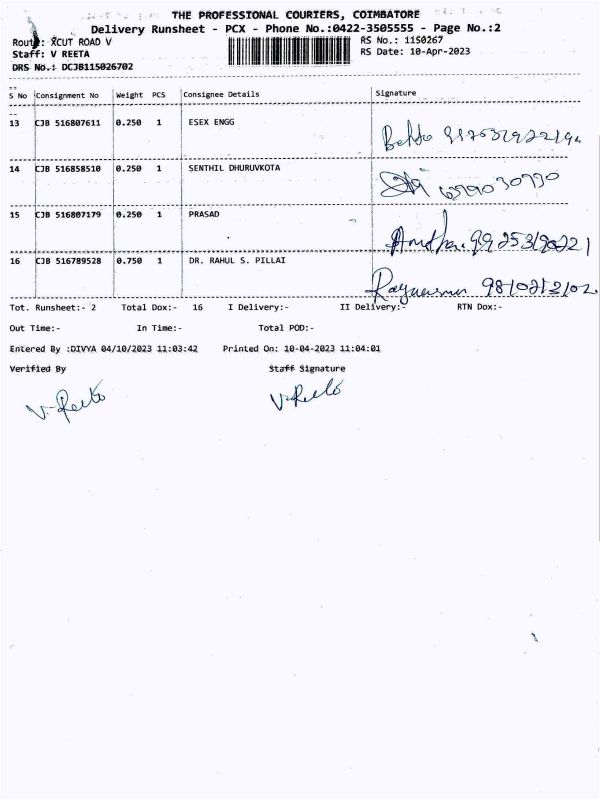 THE PROFESSIONAL COURIERS, COIMBATORE
Delivery Runsheet - PCX - Phone No.:0422-3505555 - Page No.:2
Route: XCUT ROAD V
RS No.: 1150267
Staff: V REETA
RS Date: 10-Apr-2023
DRS No.: DCJB115026702
S No Consignment No Weight PCS Consignee Details Signature
13 CJB 516807611 0.250 1 ESEX ENGG
14 CJB 516858510 0.250 1 SENTHIL DHURUVKOTA
15 CJB 516807179 0.250 1 PRASAD
16 CJB 516789528 0.750 1 DR. RAHUL S. PILLAI
Tot. Runsheet:- 2 Total Dox:- 16 I Delivery:- II Delivery:- RTN Dox:-
Out Time:- In Time:- Total POD:-
Entered By :DIVYA 04/10/2023 11:03:42 Printed On: 10-04-2023 11:04:01
Verified By Staff Signature
V. Reeta V. Reeta